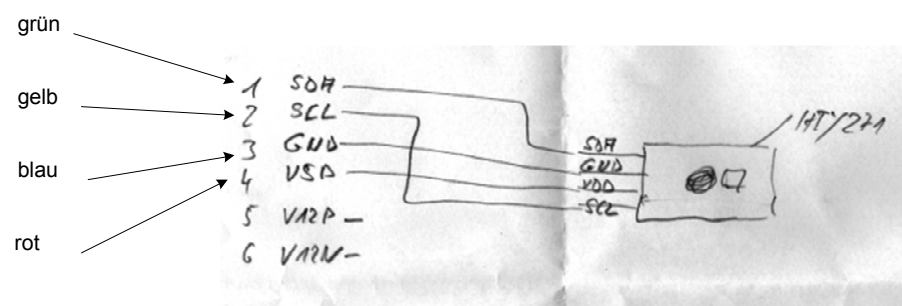 grün
gelb
blau
rot
1 SDA
2 SCL
3 GND
4 VSD
5 V12P -
6 V12N -
SDA
GND
VDD
SCL
HTY271